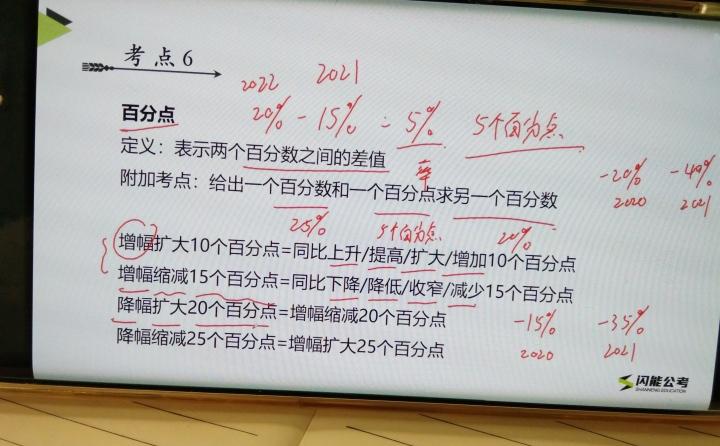 考点6
2022 2021
20% - 15% = 5% 5个百分点
百分点
定义：表示两个百分数之间的差值
率
-20% -40%
附加考点：给出一个百分数和一个百分点求另一个百分数
2020 2021
25% 5个百分点 20%
增幅扩大10个百分点=同比上升/提高/扩大/增加10个百分点
增幅缩减15个百分点=同比下降/降低/收窄/减少15个百分点
降幅扩大20个百分点=增幅缩减20个百分点
-15% -35%
降幅缩减25个百分点=增幅扩大25个百分点
2020 2021
闪能公考
SHANNENG EDUCATION